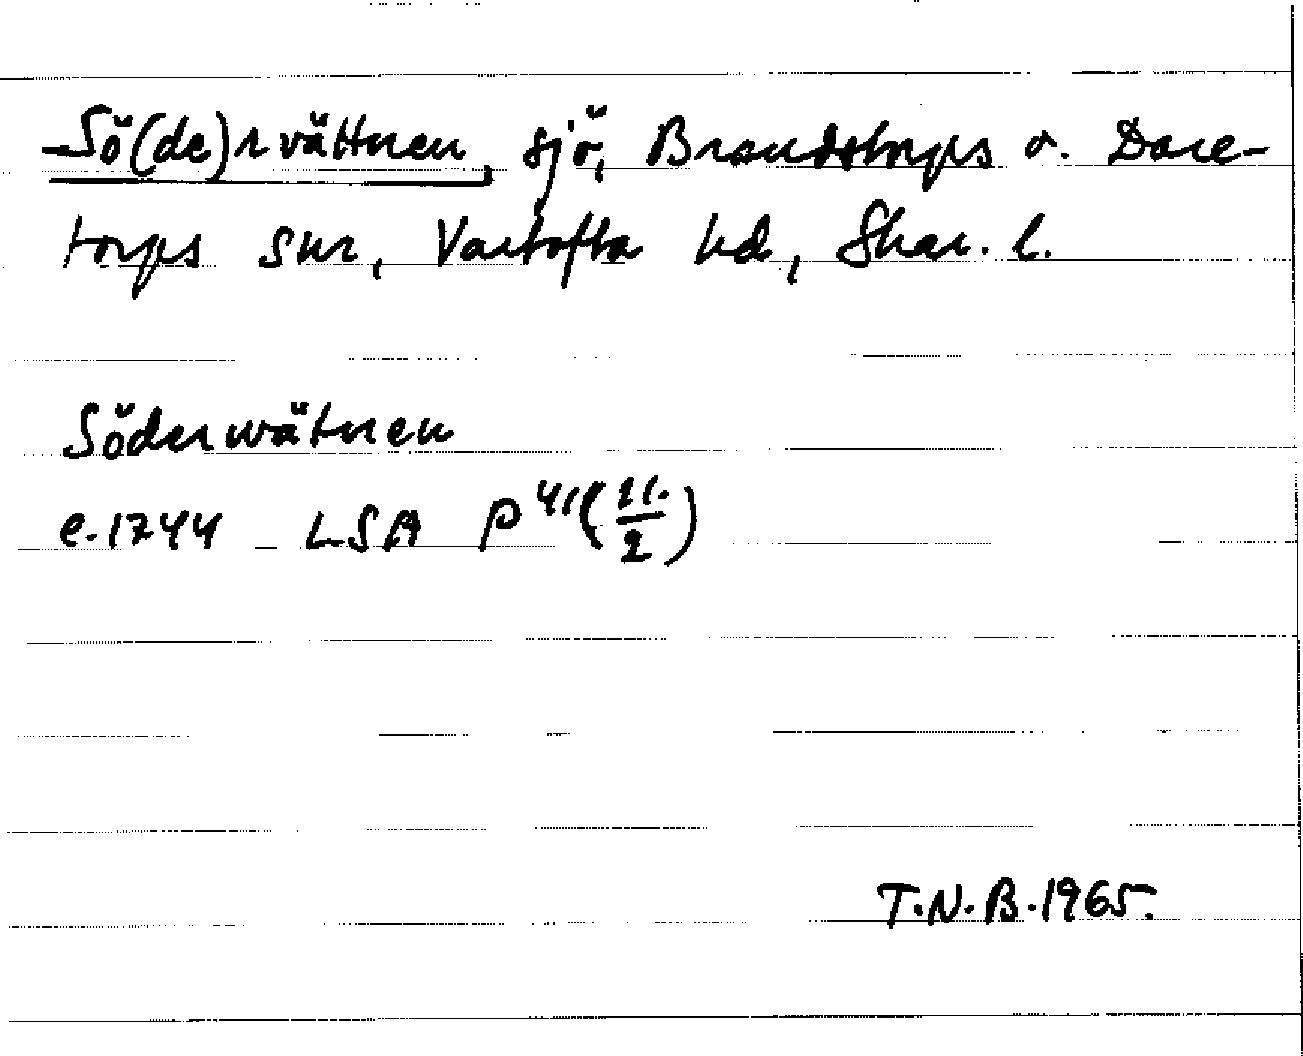 Sö(de)rvättnen, sjö, Brandstorps o. Dare-
torps snr, Vartofta hd, Skar. l.
Söderwätnen
e. 1744 LSA P 41 (11./2)
T.N.B. 1965.